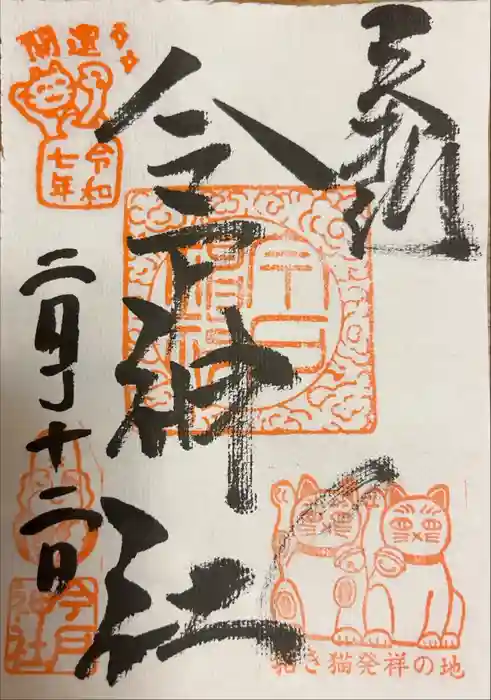 奉拝
今戸神社
招き猫発祥の地
開運
令和
七年
二月十二日
今戸
神社